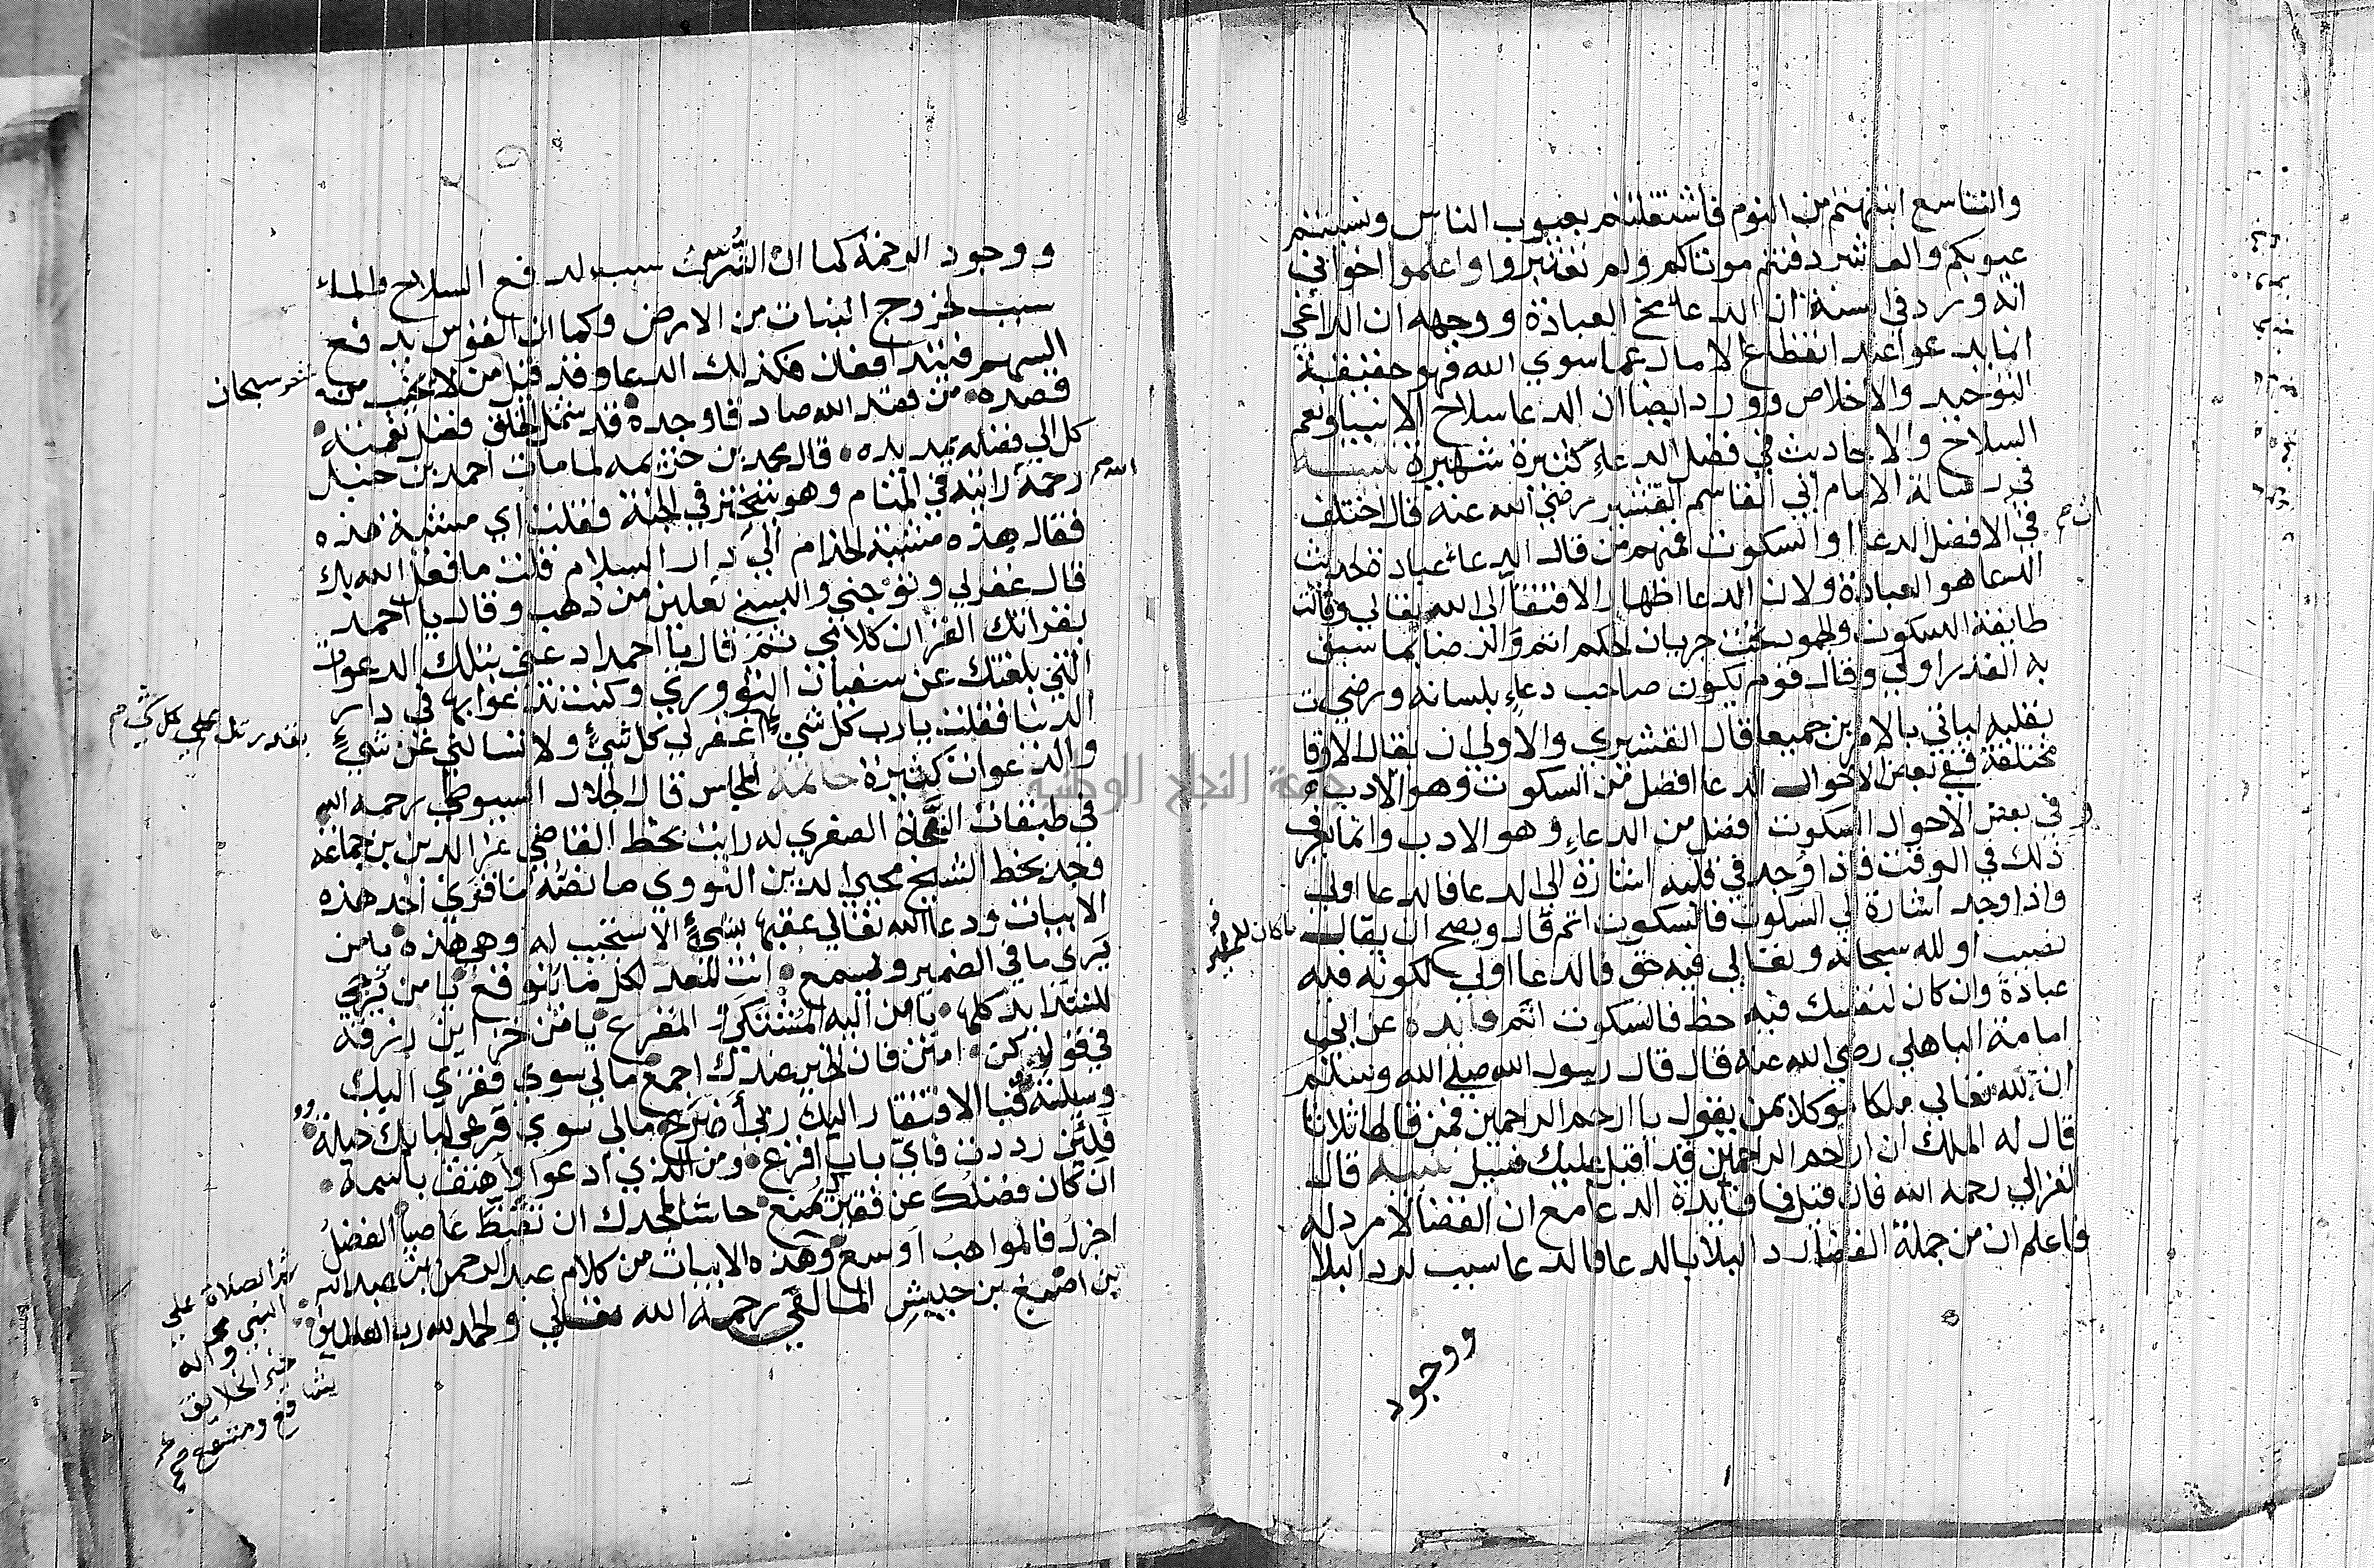 والتاسع انتبهتم من النوم فاشتغلتم بعيوب الناس ونسيتم
عيوبكم والعاشر دفنتم موتاكم ولم تعتبروا واعلموا اخواني
انه ورد في السنة ان الدعا مخ العبادة ووجهه ان الداعي
انما يدعوا عند انقطاع الامال عما سوي الله فهو حقيقة
التوحيد والاخلاص وورد ايضا ان الدعا سلاح الانبيا ونعم
السلاح والاحاديث في فضل الدعاء كثيرة شهيرة تنبيه
في رسالة الامام ابي القاسم القشيري رضي الله عنه قال اختلف
ان
في الافضل الدعا او السكوت فمنهم من قال الدعاء عبادة لحديث
الدعا هو العبادة ولان الدعا اظهار الافتقار الي الله تعالي وقالت
طايفة السكوت والخمود تحت جريان الحكم اتم والرضا بما سبق
به القدر اولي وقال قوم يكون صاحب دعاء بلسانه ورضي
بقلبه لياتي بالامرين جميعا قال القشيري والاولي ان يقال الاوقا
مختلفة ففي بعض الاحوال الدعا افضل من السكوت وهو الادب
و
في بعض الاحوال السكوت افضل من الدعاء وهو الادب وانما يعرف
ذلك في الوقت فاذا وجد في قلبه اشارة الي الدعا فالدعا اولي
واذا وجد اشارة الي السكوت فالسكوت اتم قال ويصح ان يقال
ما كان للمسلمين فيه
نصيب او لله سبحانه وتعالي فيه حق فالدعا اولي لكونه فيه
عبادة وان كان لنفسك فيه حظ فالسكوت اتم فايدة عن ابي
امامة الباهلي رضي الله عنه قال قال رسول الله صلي الله وسلم
ان لله تعالي ملكا موكلا بمن يقول يا ارحم الراحمين فمن قالها ثلاثا
قال له الملك ان ارحم الراحمين قد اقبل عليك فسل تنبيه قال
الغزالي رحمه الله فان قيل فما فايدة الدعا مع ان القضا لا مرد له
فاعلم ان من جملة القضا رد البلا بالدعا فالدعا سبب لرد البلا
ووجود
ووجود الرحمة كما ان الترس سبب لدفع السلاح والماء
سبب لخروج النبات من الارض وكما ان القوس يدفع
السهم فكذلك الدعا وقد قيل من لا يخيب من
سبحان
قصده من قصد الله صاد قا وجده قد شمل الخلق فضل نعمته
كل الي فضله يمد يده قال محمد بن خزيمه لما مات احمد بن حنبل
الله
رحمه رايته في المنام وهو يتبختر في الجنة فقلت اي مشية هذه
فقال هذه مشية الخدام الي دار السلام فقلت ما فعل الله بك
قال غفر لي وتوجني والبسني نعلين من ذهب وقال يا احمد
بقرانك القران كلامي ثم قال يا احمد ادعني بتلك الدعوات
التي بلغتك عن سفيان الثوري وكنت تدعوا بها في دار
الدنيا فقلت يا رب كل شيء اغفر لي كل شيء ولا تسالني عن شيء
بقدرتك علي كل شي
والدعوات كثيرة خاتمة المجلس قال الجلال السيوطي رحمه الله
في طبقات النحاة الصغري له رايت بخط القاضي عز الدين بن جماعة
وجد بخط الشيخ محيي الدين النووي ما نصه ما قري احد هذه
الابيات ودعا الله تعالي عقبها بشيء الا استجيب له وهي هذه يا من
يري ما في الضمير ويسمع انت المعد لكل ما يتوقع يا من يرجي
للشدايد كلها يا من اليه المشتكي والمفزع يا من خزاين رزقه
في قول كن امنن فان الخير عندك اجمع مالي سوي فقري اليك
وسيلة فبالافتقار اليك ربي اضرع مالي سوي قرعي لبابك حيلة
فلئن رددت فاي باب اقرع ومن الذي ادعوا واهتف باسمه
ان كان فضلك عن فقير يمنع حاشا لمجدك ان تقنط عاصيا الفضل
اجزل فالمواهب اوسع وهذه الابيات من كلام عبد الرحمن بن عبد الله
بن اصبغ بن حبيش المالقي رحمه الله تعالي والحمد لله رب العالمين
ثم الصلاة علي
النبي محمد
واله
خير الخلايق
شافع ومشفع
جامعة النجاح الوطنية